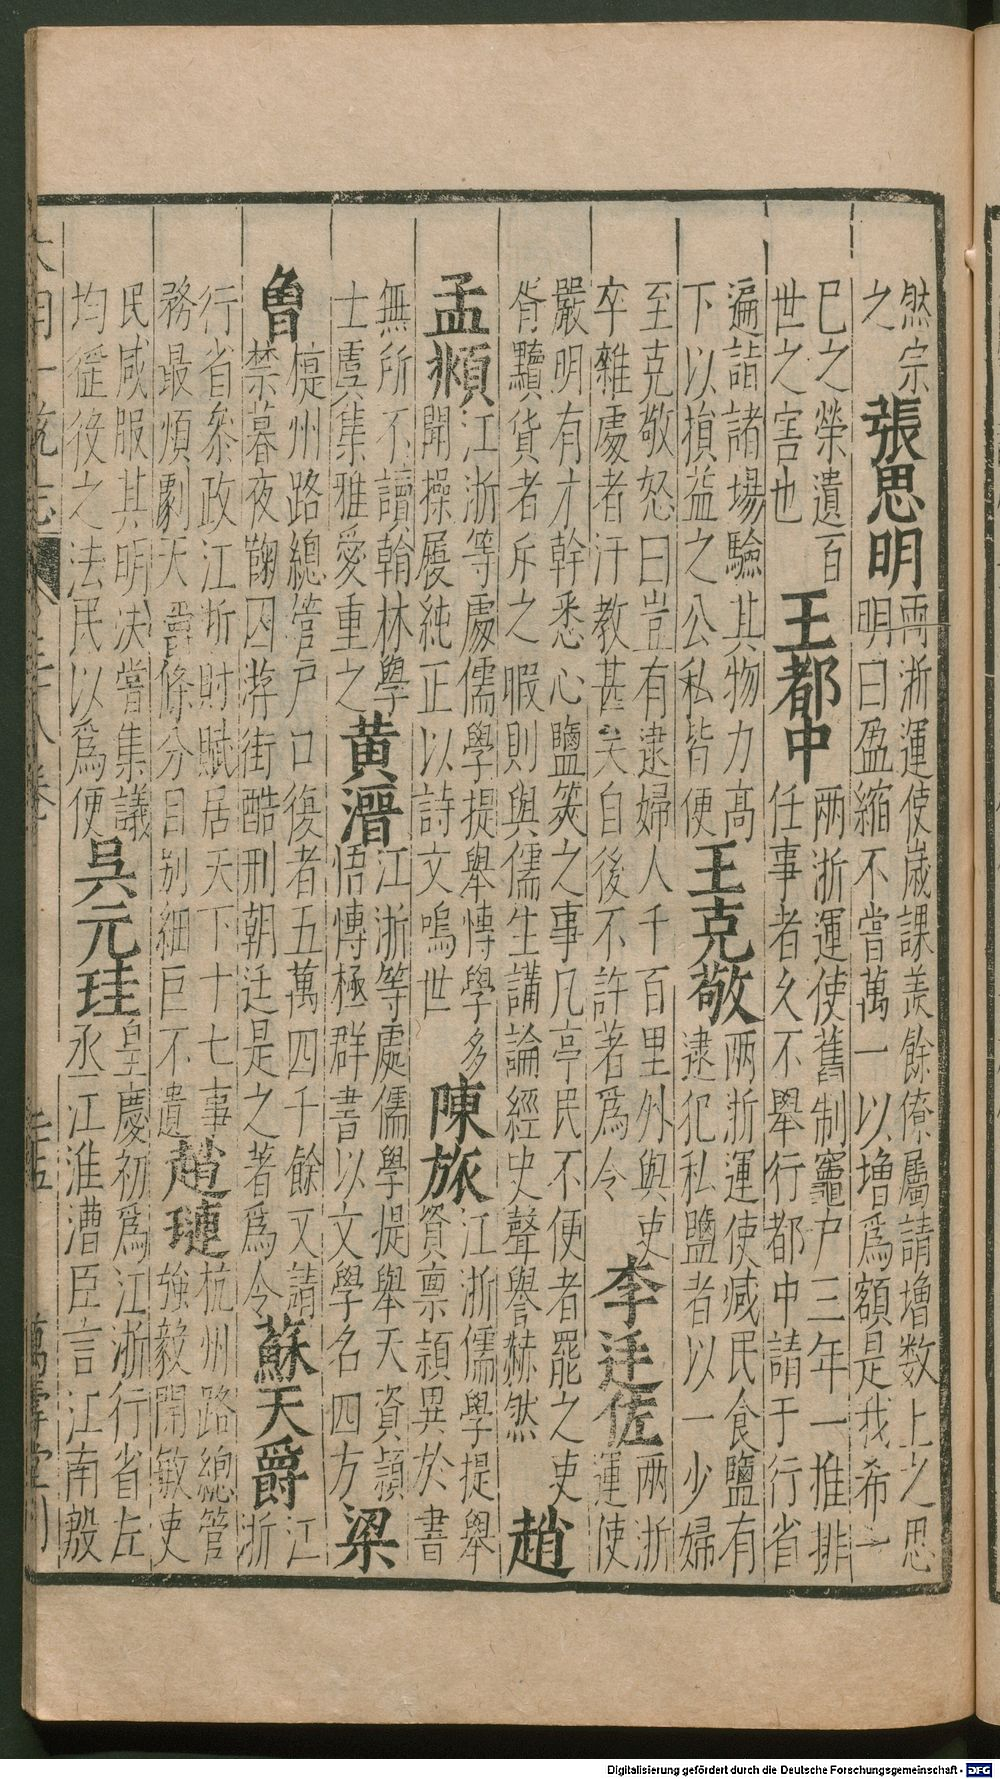 然宗
之
張思明
兩浙運使歲課羨餘僚屬請增数上之思
明曰盈縮不嘗萬一以增爲額是我希一
已之榮遺百
世之害也
王都中
两浙運使舊制竈戸三年一推排
任事者久不舉行都中請于行省
遍詣諸場驗其物力髙
下以損益之公私皆便
王克敬
两浙運使减民食鹽有
逮犯私鹽者以一少婦
至克敬怒曰豈有逮婦人千百里外與吏
卒雜處者汙教甚矣自後不許著爲令
李廷佐
两浙
運使
嚴明有才幹悉心鹽筴之事凡亭民不便者罷之吏
胥黷貨者斥之暇則與儒生講論經史聲譽赫然
趙
孟頫
江浙等處儒學提舉愽學多
聞操履純正以詩文鳴世
陳旅
江浙儒學提舉
資禀頴異於書
無所不讀翰林學
士虞集雅愛重之
黄溍
江浙等處儒學提舉天資頴
悟愽極群書以文學名四方
梁
曾
州路總管戸口復者五萬四千餘又請
禁暮夜鞫囚游街酷刑朝廷是之著爲令
蘇天爵
江
浙
行省叅政江浙財賦居天下十七事
務最煩劇天爵條分目别細巨不遺
趙璉
杭州路緫管
強毅開敏吏
民咸服其明决嘗集議
均徭役之法民以爲便
吴元珪
皇慶初爲江浙行省左
丞江淮漕臣言江南殷
大明一統志
萬壽堂刊
Digitalisierung gefördert durch die Deutsche Forschungsgemeinschaft - DFG